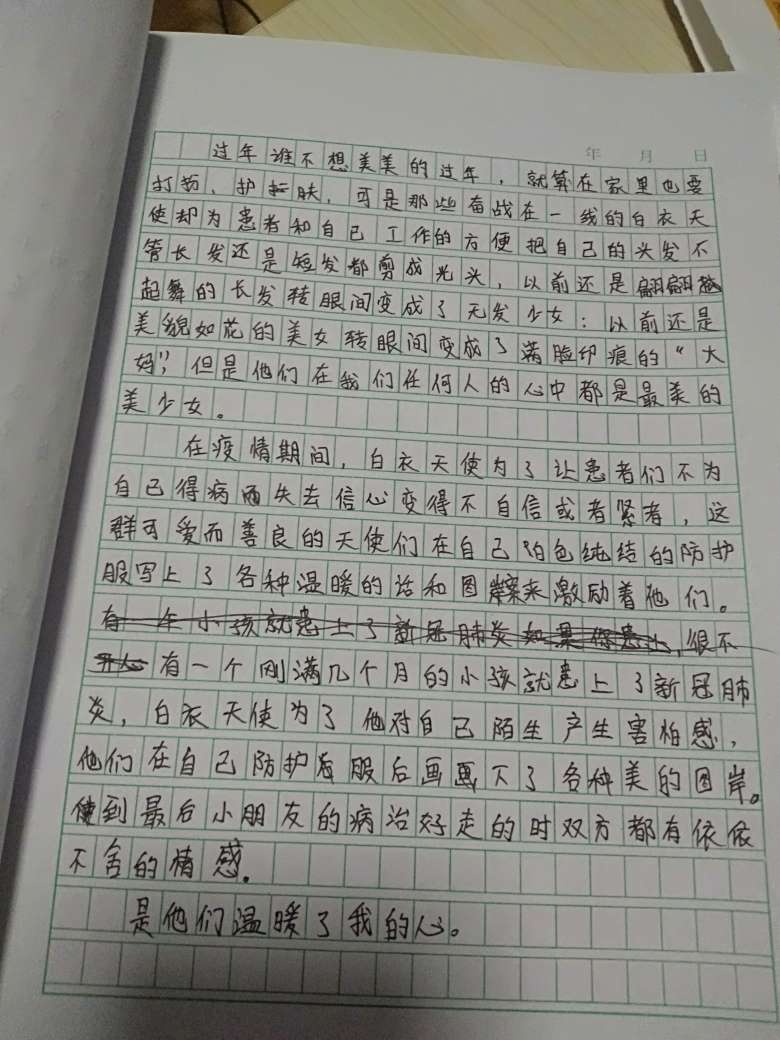 年 月 日
过年谁不想美美的过年，就算在家里也要
打扮、护肤，可是那些奋战在一线的白衣天
使却为患者和自己工作的方便把自己的头发不
管长发还是短发都剪成光头，以前还是翩翩
起舞的长发转眼间变成了无发少女；以前还是
美貌如花的美女转眼间变成了满脸印痕的“大
妈”，但是他们在我们任何人的心中都是最美的
美少女。
在疫情期间，白衣天使为了让患者们不为
自己得病而失去信心变得不自信或者紧者，这
群可爱而善良的天使们在自己白色纯结的防护
服写上了各种温暖的话和图案来激励着他们。
有一年小孩就患上了新冠肺炎如果你患上，很不
开心有一个刚满几个月的小孩就患上了新冠肺
炎，白衣天使为了他对自己陌生产生害怕感，
他们在自己防护服后画下了各种美的图岸。
使到最后小朋友的病治好走的时双方都有依依
不舍的情感.
是他们温暖了我的心。